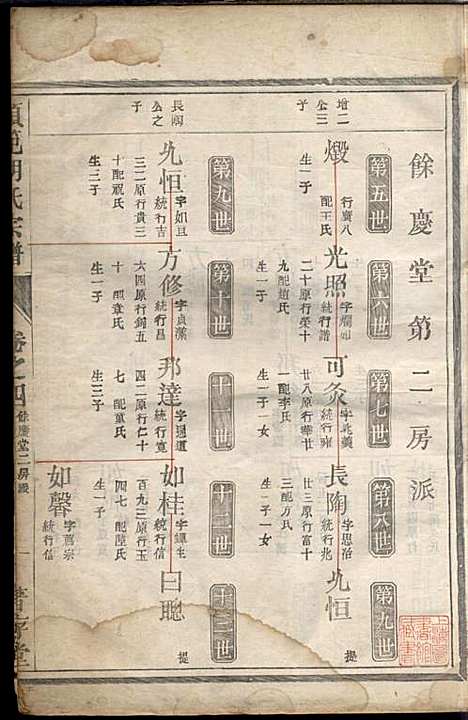 餘慶堂第二房派
第五世
第六世
第七世
第八世
第九世
增二
公三
子
煅
行廣八
配王氏
生一子
光照
統行譜
二十原行榮十
九配趙氏
生一子
可灸
統行雍
廿八原行華廿
一配李氏
生一子一女
長陶
字思治
統行兆
廿三原行富十
三配方氏
生一子一女
九恒
提
第九世
第十世
十一世
十二世
十三世
長陶
公之
子
九恒
字如旦
統行吉
三二原行貴三
十配祝氏
生三子
方修
字貞藻
統行昌
六四原行錦五
十配章氏
生一子
邦達
字週道
統行寬
四二原行仁十
七配董氏
生三子
如桂
統行信
百九三原行玉
四七配陸氏
生一子一女
曰聰
提
如馨
字薦宗
統行信
胡氏宗譜
卷之四
餘慶堂二房派
一